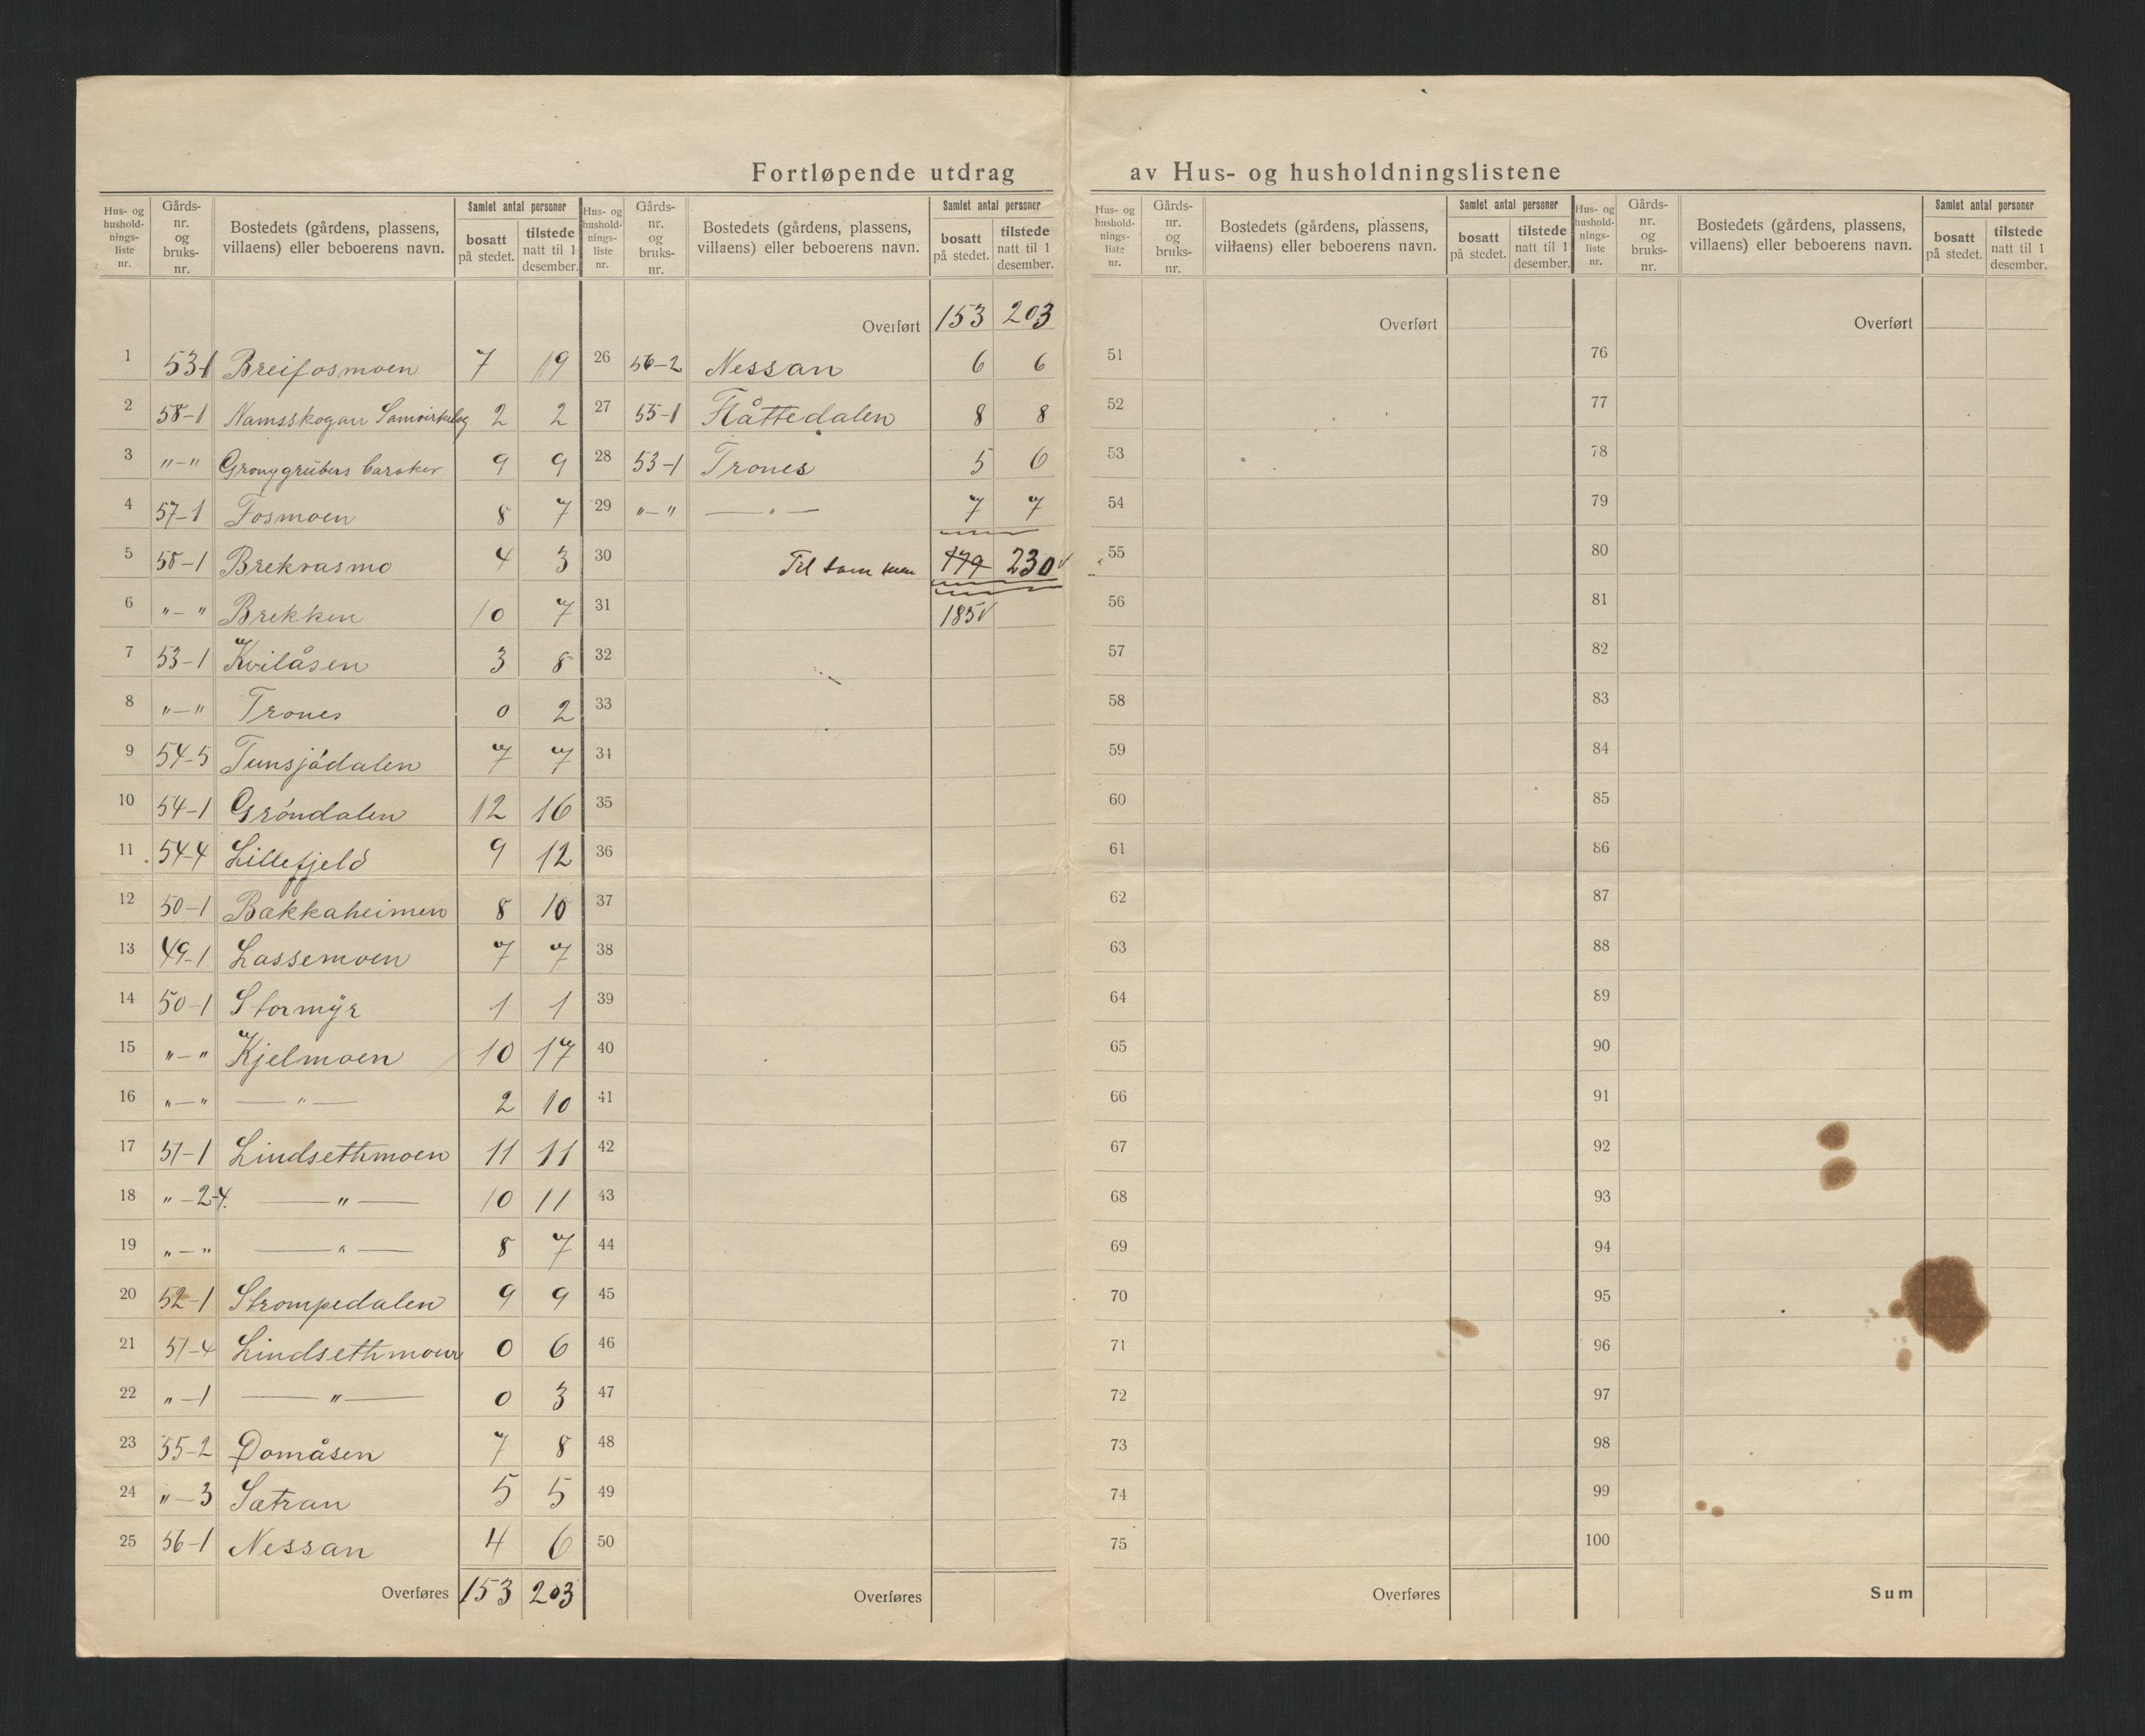 Fortløpende utdrag av Hus- og husholdningslistene
Hus- og hushold- nings- liste nr. Gårds- nr. og bruks- nr. Bostedets (gårdens, plassens, villaens) eller beboerens navn. Samlet antal personer bosatt på stedet. tilstede natt til 1 desember.
1 53-1 Breifosmoen 7 19
2 58-1 Namsskogan Samvirkelag 2 2
3 "-" Gronggrubers barakker 9 9
4 57-1 Fosmoen 8 7
5 58-1 Brekvasmo 4 3
6 "-" Brekken 10 7
7 53-1 Kvilåsen 3 8
8 "-" Trones 0 2
9 54-5 Tunsjødalen 7 7
10 54-1 Grøndalen 12 16
11 54-4 Lillefjeld 9 12
12 50-1 Bækkaheimen 8 10
13 49-1 Lassemoen 7 7
14 50-1 Stormyr 1 1
15 "-" Kjelmoen 10 17
16 "-" — " — 2 10
17 51-1 Lindsethmoen 11 11
18 "-2-4. — " — 10 11
19 "-" — " — 8 7
20 52-1 Strompedalen 9 9
21 51-4 Lindsethmoen 0 6
22 "-1 — " — 0 3
23 55-2 Domåsen 7 8
24 "-3 Sætran 5 5
25 56-1 Nessan 4 6
Overføres 153 203
Hus- og hushold- nings- liste nr. Gårds- nr. og bruks- nr. Bostedets (gårdens, plassens, villaens) eller beboerens navn. Samlet antal personer bosatt på stedet. tilstede natt til 1 desember.
Overført 153 203
26 56-2 Nessan 6 6
27 55-1 Flåttedalen 8 8
28 53-1 Trones 5 6
29 "-" — " — 7 7
30 Til sammen 179 230 v
31 185 v
32
33
34
35
36
37
38
39
40
41
42
43
44
45
46
47
48
49
50
Overføres
Hus- og hushold- nings- liste nr. Gårds- nr. og bruks- nr. Bostedets (gårdens, plassens, villaens) eller beboerens navn. Samlet antal personer bosatt på stedet. tilstede natt til 1 desember.
Overført
51
52
53
54
55
56
57
58
59
60
61
62
63
64
65
66
67
68
69
70
71
72
73
74
75
Overføres
Hus- og hushold- nings- liste nr. Gårds- nr. og bruks- nr. Bostedets (gårdens, plassens, villaens) eller beboerens navn. Samlet antal personer bosatt på stedet. tilstede natt til 1 desember.
Overført
76
77
78
79
80
81
82
83
84
85
86
87
88
89
90
91
92
93
94
95
96
97
98
99
100
Sum